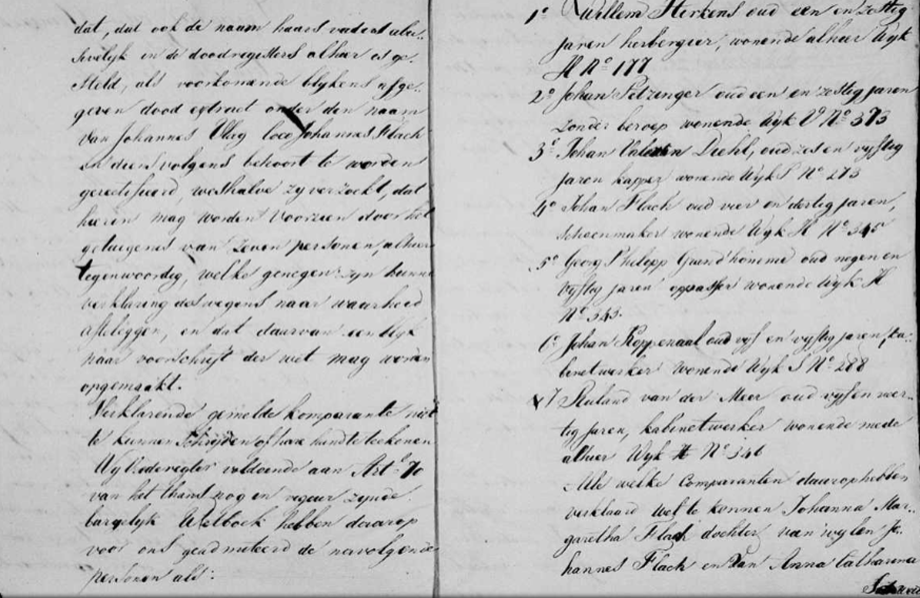 dat, dat ook de naam haars vaders abu-
sivelyk in de doodregisters alhier is ge-
steld, als voorkomende blykens afge-
geven dood extract onder den naam
van Johannes Vlug loco Johannes Flack
en diensvolgens behoort te worden
gerectifieerd, weshalve zy verzoekt, dat
hierin mag worden voorzien door het
getuigenis van zeven personen, alhier
tegenwoordig, welke genegen zyn hunne
verklaring deswegens naar waarheid
afteleggen, en dat daarvan een blyk
naar voorschrift der wet mag worden
opgemaakt.
Verklarende gemelde komparante niet
te kunnen schryven of hare hand te teekenen
Wy Vrederegter voldoende aan Art. 70
van het thans nog in vigeur zynde
burgelyk Wetboek hebben daarop
voor ons geadmitteerd de navolgende
personen als:
1° Willem Sterkens oud een en zestig
jaren herbergier, wonende alhier Wyk
H N° 177
2° Johan Pitzenger oud een en zestig jaren
zonder beroep wonende Wyk V N° 373
3° Johan Valentin Diehl, oud zes en vyftig
jaren kapper wonende Wyk S N° 273
4° Johan Flack oud vier en dertig jaren,
schoenmaker wonende Wyk H N° 345
5° Georg Philipp Grandhomme oud negen en
vyftig jaren oppasser wonende Wyk H
N° 343
6° Johan Koppenaal oud vyf en vyftig jaren ka-
binetwerker wonende Wyk S N° 288
7 Ruland van der Meer oud vyf en veer-
tig jaren, kabinetwerker wonende mede
alhier Wyk H N° 346
Alle welke Comparanten daarop hebben
verklaard wel te kennen Johanna Mar-
garetha Flack dochter van wylen Jo-
hannes Flack en van Anna Catharina